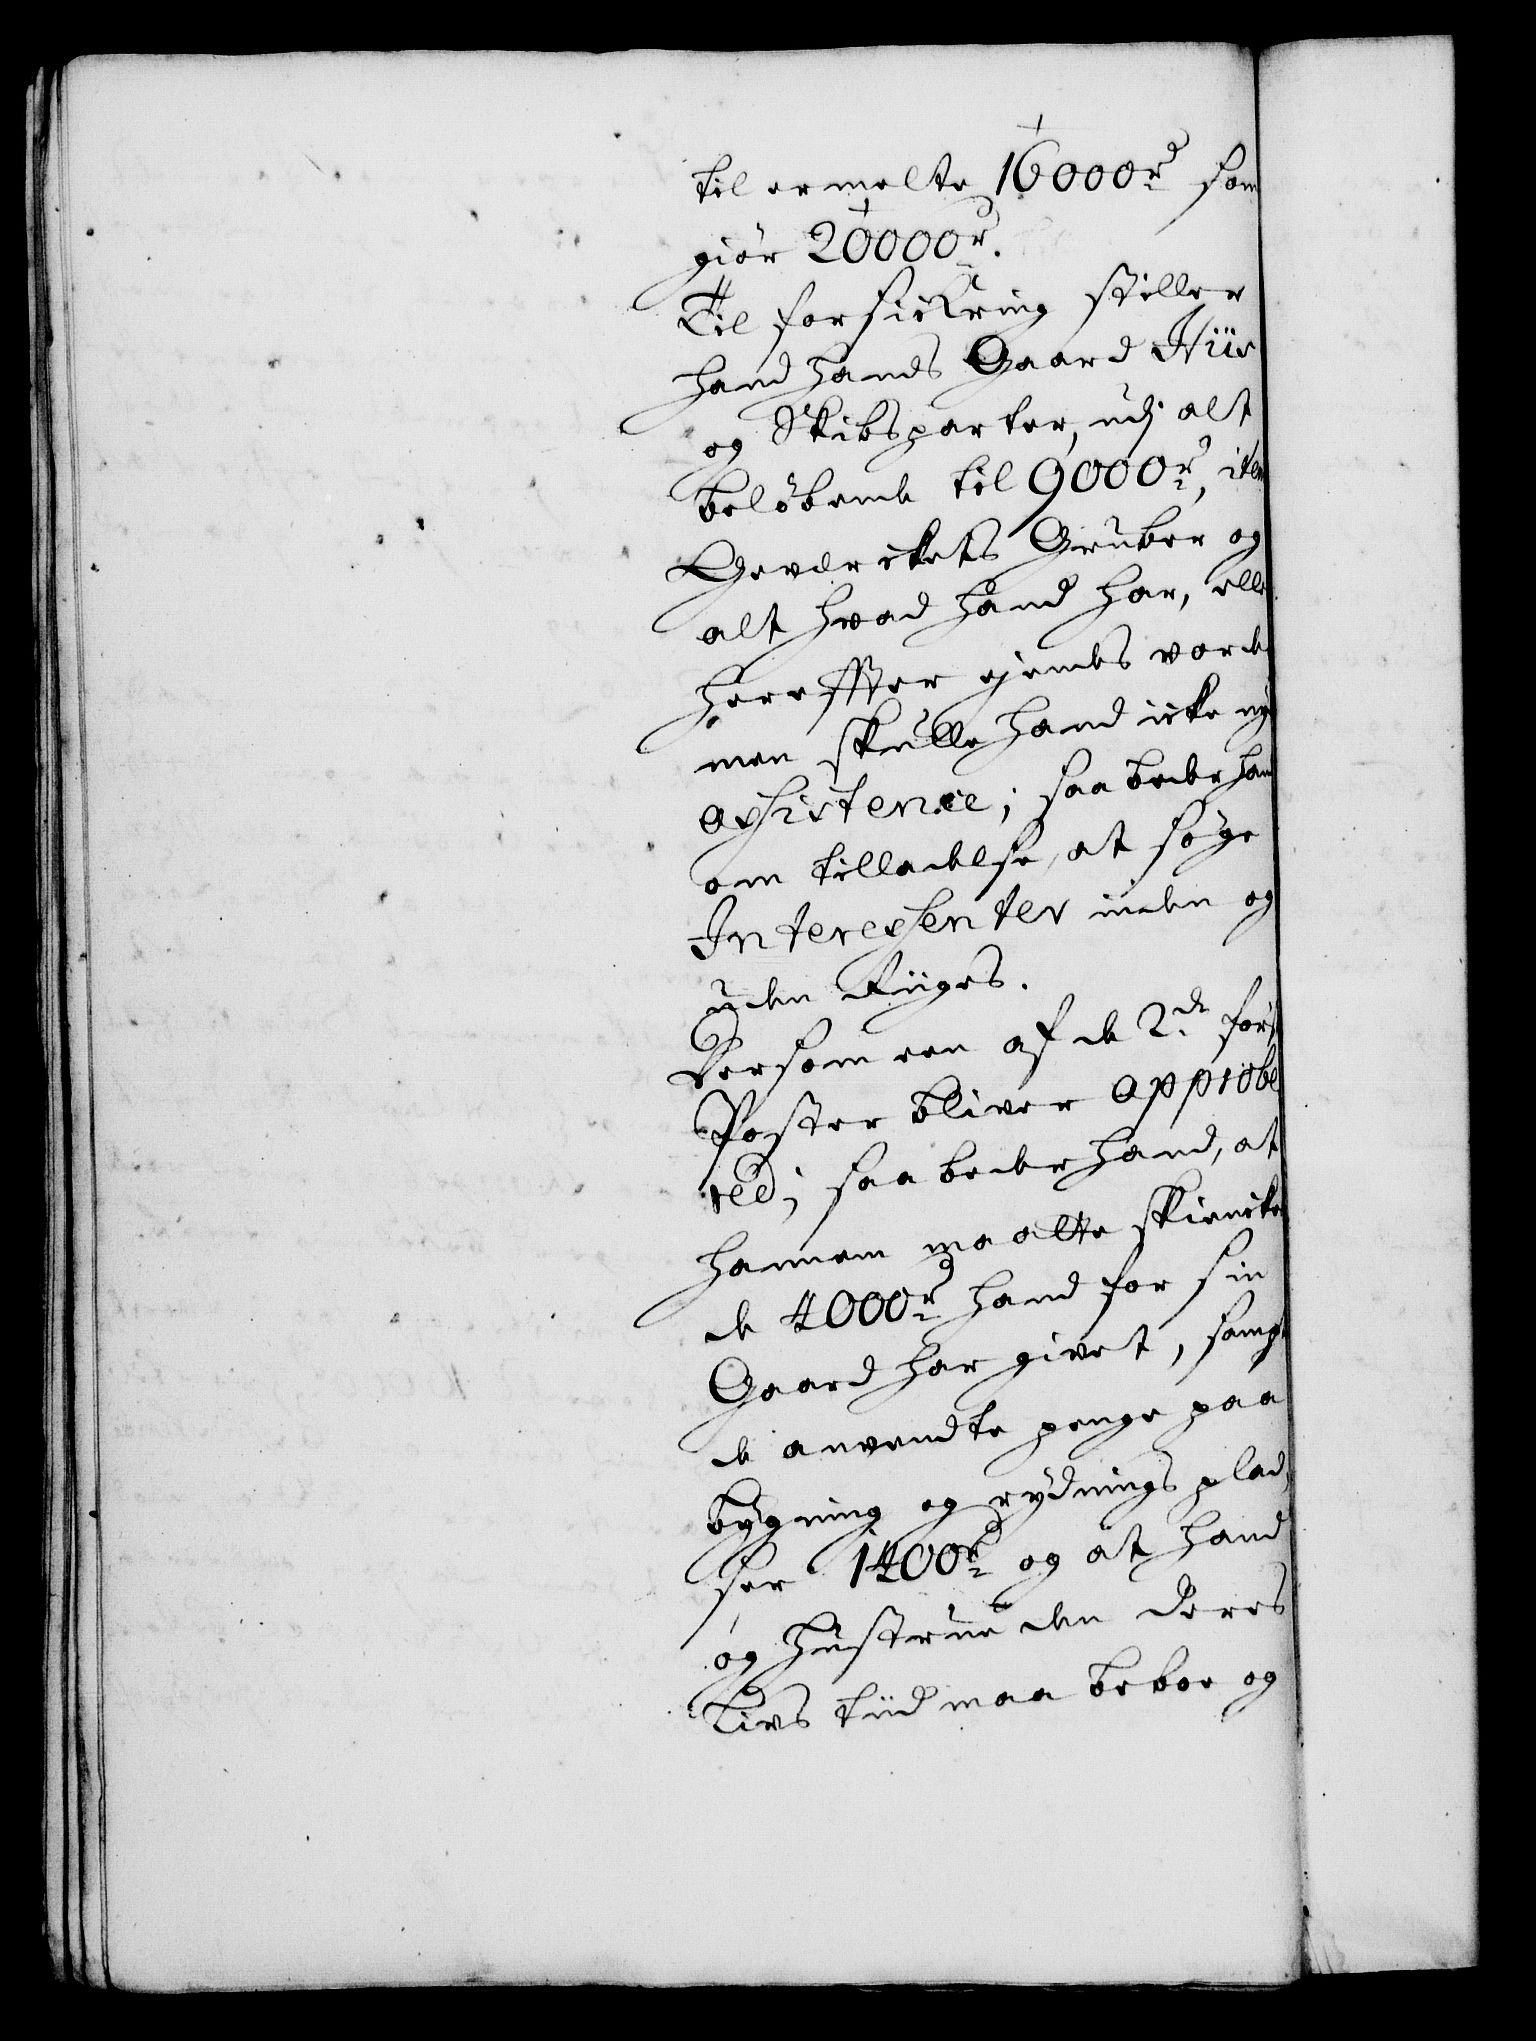 til ermelte 16000 rd som
giör 20000 rd.
Til forsickring stiller
hand hands Gaard Huus
og Skibsparter, udj alt
belöbende til 9000 rd, item
Gewerckets Gruber og
alt hvad hand har, elle
herefter ejendes vorde
men skulle hand icke ny
assistence; saa beder hand
om tilladelse, at söge
Interessenter inden og
uden Riiges.
Dersom een af de 2de förs
Poster bliver approbe
red; saa beder hand, at
hannem maatte skienckes
de 4000 rd hand for sin
Gaard har givet, sampt
de anvendte penge paa
bygning og rydnings plad
ser 1400 rd og at hand
og Hustrue den deres
Livs tiid maa beboe og